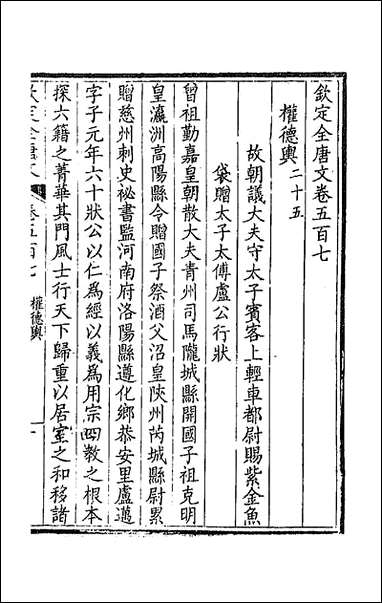 欽定全唐文卷五百七
權德輿二十五
故朝議大夫守太子賓客上輕車都尉賜紫金魚
袋贈太子太傅盧公行狀
曾祖勤嘉皇朝散大夫青州司馬隴城縣開國子祖克明
皇瀛洲高陽縣令贈國子祭酒父沼皇陝州芮城縣尉累
贈慈州刺史祕書監河南府洛陽縣遵化鄉恭安里盧邁
字子元年六十狀公以仁爲經以義爲用宗四教之根本
探六籍之菁華其門風士行天下歸重以居室之和移諸
欽定全唐文 卷五百七 權德輿 一